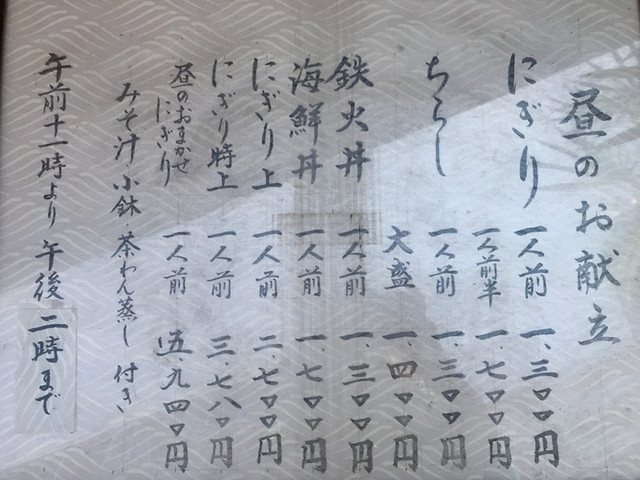 昼のお献立
にぎり 一人前 一、三〇〇円
一人前半 一、七〇〇円
ちらし 一人前 一、三〇〇円
大盛 一、四〇〇円
鉄火丼 一人前 一、三〇〇円
海鮮丼 一人前 一、七〇〇円
にぎり上 一人前 二、七〇〇円
にぎり特上 一人前 三、七八〇円
昼のおまかせにぎり 一人前 五、九四〇円
みそ汁 小鉢 茶わん蒸し 付き
午前十一時より 午後二時まで